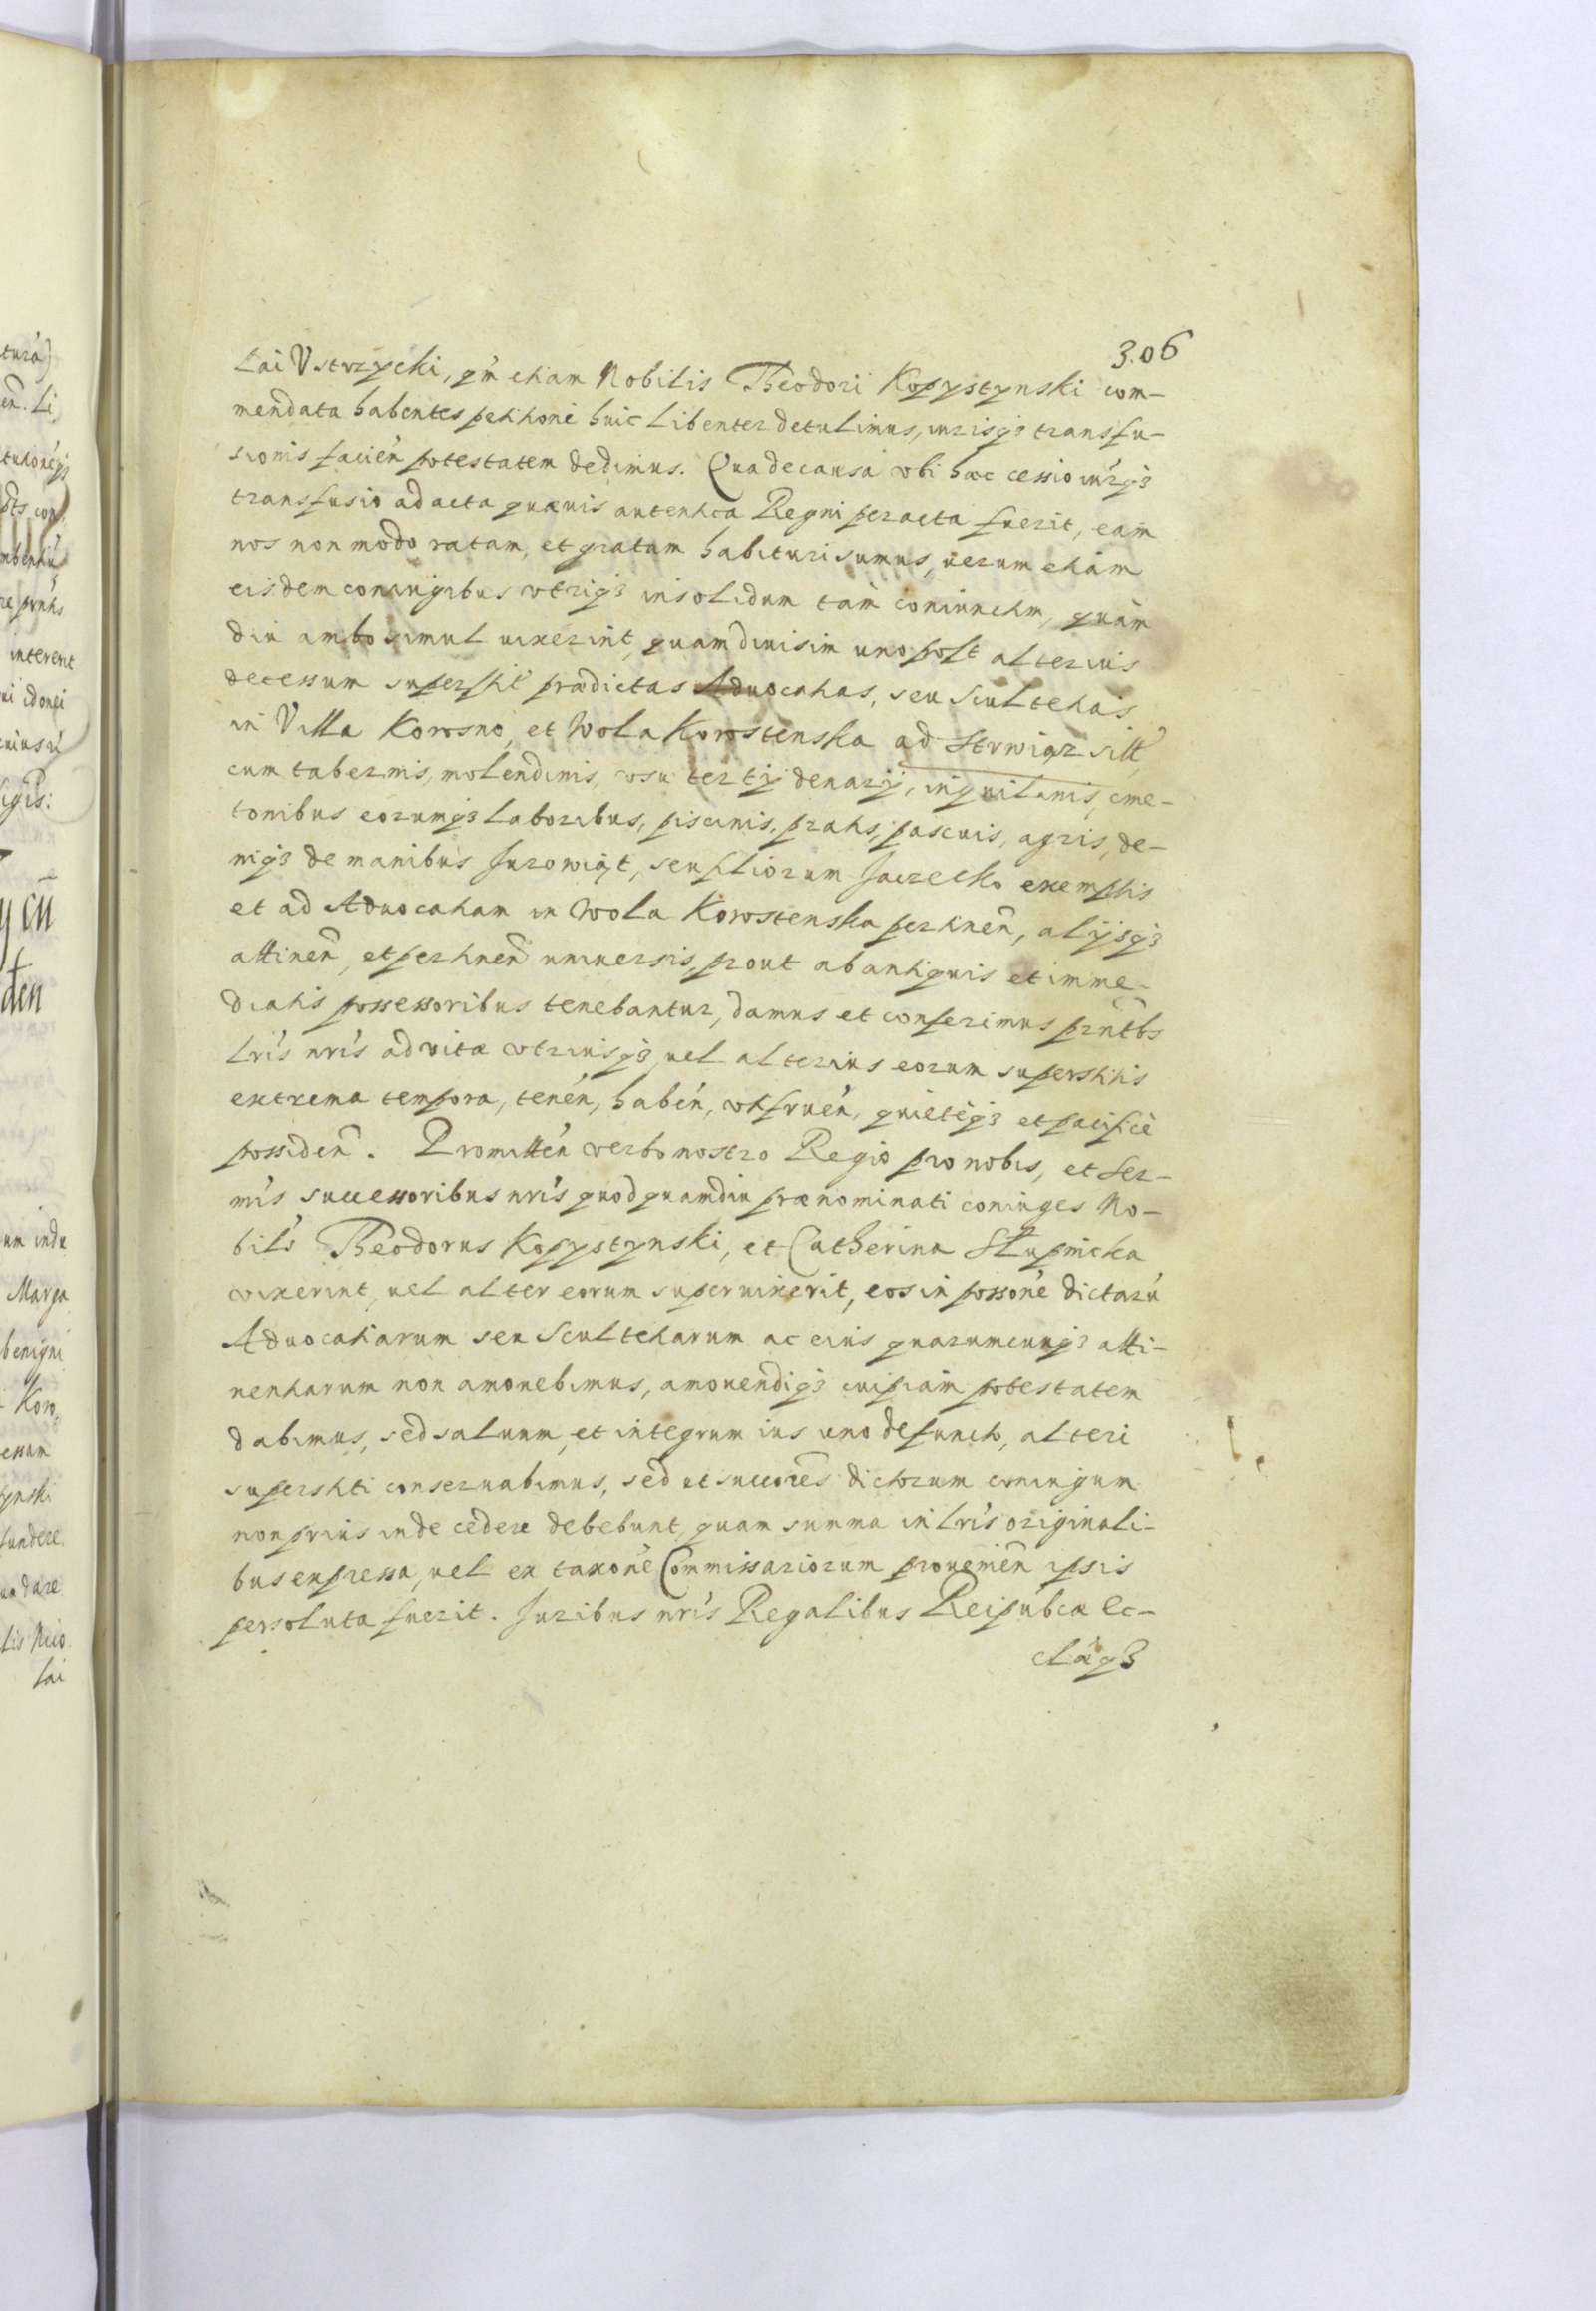 306
lai Vstrzycki, qm̃ etiam Nobilis Theodori Kopystynski com-
mendata habentes petitioni huic libenter detulimus, iurisq3 transfu-
sionis facień potestatem dedimus. Qua de causa vbi haec cessio iurisq3
transfusio ad acta quaeuis autentica Regni peracta fuerit, eam
nos non modo ratam, et gratam habituri sumus, uerum etiam
eisdem coniugibus vtriq3 in solidum tam coniunctim, quam
diu ambo simul uixerint, quam diuisim uno post alterius
decessum superstit̃ praedictas Aduocatias, seu Scultetias
in Villa Korosno, et Wola Korostenska ad Strwiąz sitt̃
cum tabernis, molendinis, vsu tertij denarij, inquilinis, cme-
tonibus eorumq3 laboribus, piscinis, pratis, pascuis, agris, de-
niq3 de manibus Jurowięt, seu filiorum Jaczecko exemptis
et ad Aduocatiam in Wola Korostenska pertineñ, alijsq3
attineñ, et pertineñ uniuersis, prout ab antiquis et imme-
diatis possessoribus tenebantur, damus et conferimus prñtbs
lrís nrís ad vitae vtriusq3, uel alterius eorum superstitis
extrema tempora, tenéń, habéń, vtifruéń, quieteq3 et pacifice
possideñ. Promitteń verbo nostro Regio pro nobis, et Ser-
mís successoribus nrís quod quamdiu praenominati coniuges No-
bilś Theodorus Kopystynski, et Catherina Stupnicka
vixerint, uel alter eorum superuixerit, eos in possoñe dictarú
Aduocatiarum seu Scultetiarum ac eius quarumcunq3 atti-
nentiarum non amouebimus, amouendiq3 cuipiam potestatem
dabimus, sed saluum, et integrum ius uno defuncto, alteri
superstiti conseruabimus, sed et succores dictorum coniugum
non prius inde cedere debebunt, quam summa in lrís originali-
bus expressa, uel ex taxoñe Commissariorum proueniéñ ipsis
persoluta fuerit. Juribus nrís Regalibus Reipubcae Ec-
cláq3